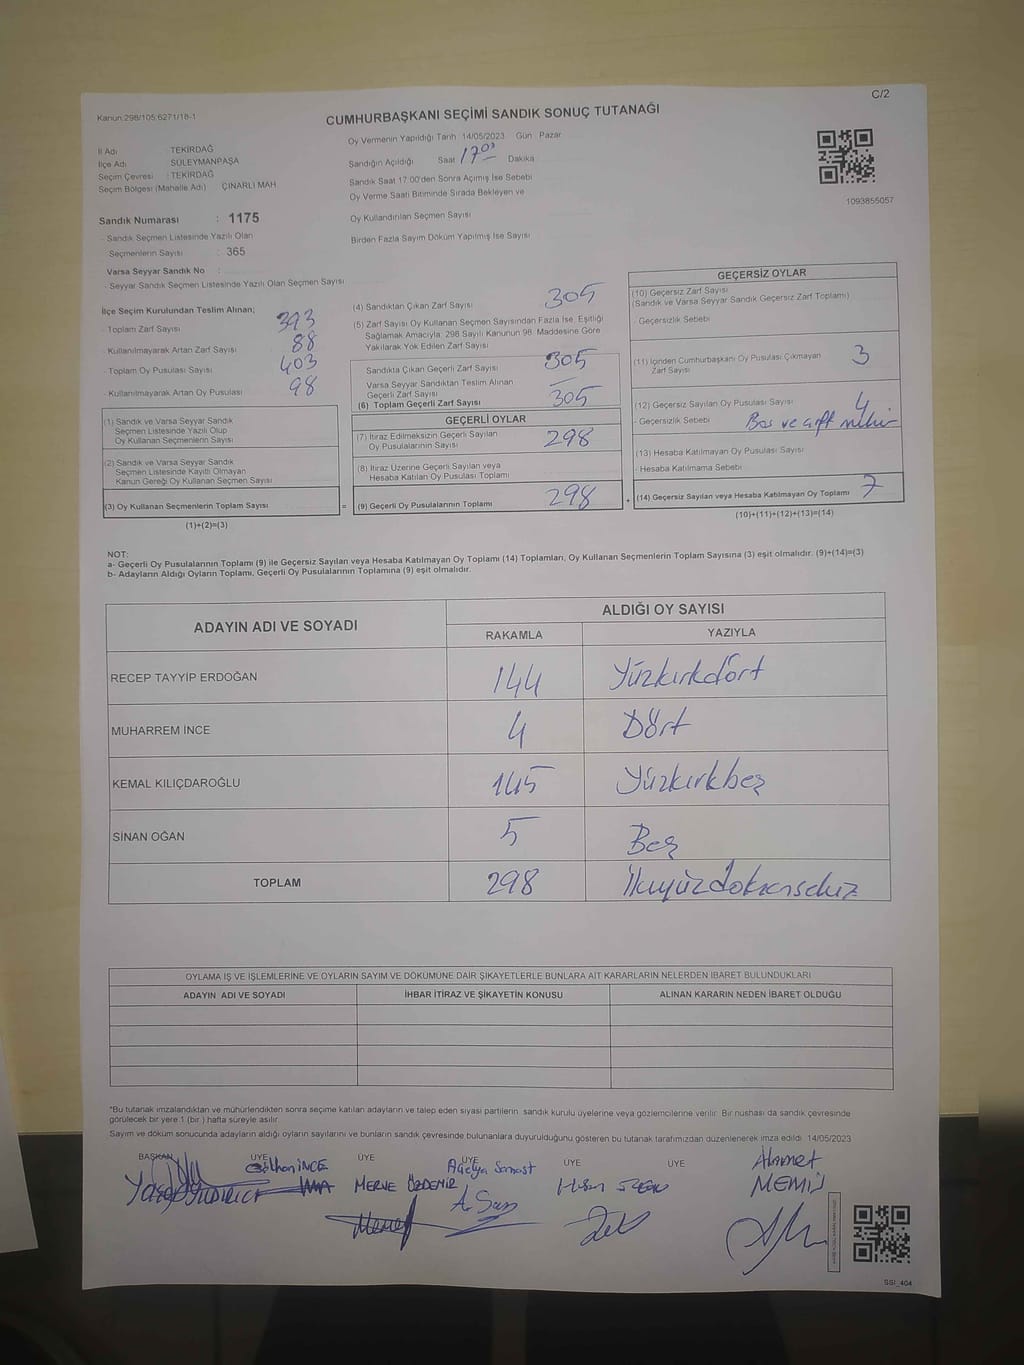 C/2
Kanun:298/105,6271/18-1
CUMHURBAŞKANI SEÇİMİ SANDIK SONUÇ TUTANAĞI
İl Adı TEKİRDAĞ
İlçe Adı SÜLEYMANPAŞA
Seçim Çevresi : TEKİRDAĞ
Seçim Bölgesi (Mahalle Adı) ÇINARLI MAH
Sandık Numarası : 1175
- Sandık Seçmen Listesinde Yazılı Olan
- Seçmenlerin Sayısı : 365
Varsa Seyyar Sandık No :
- Seyyar Sandık Seçmen Listesinde Yazılı Olan Seçmen Sayısı
Oy Vermenin Yapıldığı Tarih 14/05/2023 Gün Pazar
Sandığın Açıldığı Saat 17 00 Dakika
Sandık Saat 17:00'den Sonra Açımış İse Sebebi
Oy Verme Saati Bitiminde Sırada Bekleyen ve
Oy Kullandırılan Seçmen Sayısı
Birden Fazla Sayım Döküm Yapılmış İse Sayısı
1093855057
İlçe Seçim Kurulundan Teslim Alınan;
- Toplam Zarf Sayısı 393
- Kullanılmayarak Artan Zarf Sayısı 88
- Toplam Oy Pusulası Sayısı 403
- Kullanılmayarak Artan Oy Pusulası 98
(1) Sandık ve Varsa Seyyar Sandık
Seçmen Listesinde Yazılı Olup
Oy Kullanan Seçmenlerin Sayısı
(2) Sandık ve Varsa Seyyar Sandık
Seçmen Listesinde Kayıtlı Olmayan
Kanun Gereği Oy Kullanan Seçmen Sayısı
(3) Oy Kullanan Seçmenlerin Toplam Sayısı
(1)+(2)=(3)
=
(4) Sandıktan Çıkan Zarf Sayısı 305
(5) Zarf Sayısı Oy Kullanan Seçmen Sayısından Fazla İse, Eşitliği
Sağlamak Amacıyla; 298 Sayılı Kanunun 98. Maddesine Göre
Yakılarak Yok Edilen Zarf Sayısı
Sandıkta Çıkan Geçerli Zarf Sayısı 305
Varsa Seyyar Sandıktan Teslim Alınan
Geçerli Zarf Sayısı —
(6) Toplam Geçerli Zarf Sayısı 305
GEÇERLİ OYLAR
(7) İtiraz Edilmeksizin Geçerli Sayılan
Oy Pusulalarının Sayısı 298
(8) İtiraz Üzerine Geçerli Sayılan veya
Hesaba Katılan Oy Pusulası Toplamı
(9) Geçerli Oy Pusulalarının Toplamı 298
+
GEÇERSİZ OYLAR
(10) Geçersiz Zarf Sayısı
(Sandık ve Varsa Seyyar Sandık Geçersiz Zarf Toplamı)
- Geçersizlik Sebebi
(11) İçinden Cumhurbaşkanı Oy Pusulası Çıkmayan
Zarf Sayısı 3
(12) Geçersiz Sayılan Oy Pusulası Sayısı 4
- Geçersizlik Sebebi Boş ve çift mühür
(13) Hesaba Katılmayan Oy Pusulası Sayısı
- Hesaba Katılmama Sebebi
(14) Geçersiz Sayılan veya Hesaba Katılmayan Oy Toplamı 7
(10)+(11)+(12)+(13)=(14)
NOT:
a- Geçerli Oy Pusulalarının Toplamı (9) ile Geçersiz Sayılan veya Hesaba Katılmayan Oy Toplamı (14) Toplamları, Oy Kullanan Seçmenlerin Toplam Sayısına (3) eşit olmalıdır. (9)+(14)=(3)
b- Adayların Aldığı Oyların Toplamı, Geçerli Oy Pusulalarının Toplamına (9) eşit olmalıdır.
ADAYIN ADI VE SOYADI ALDIĞI OY SAYISI
RAKAMLA YAZIYLA
RECEP TAYYİP ERDOĞAN 144 Yüzkırkdört
MUHARREM İNCE 4 Dört
KEMAL KILIÇDAROĞLU 145 Yüzkırkbeş
SİNAN OĞAN 5 Beş
TOPLAM 298 İkiyüzdoksansekiz
OYLAMA İŞ VE İŞLEMLERİNE VE OYLARIN SAYIM VE DÖKÜMÜNE DAİR ŞİKAYETLERLE BUNLARA AİT KARARLARIN NELERDEN İBARET BULUNDUKLARI
ADAYIN ADI VE SOYADI İHBAR İTİRAZ VE ŞİKAYETİN KONUSU ALINAN KARARIN NEDEN İBARET OLDUĞU
*Bu tutanak imzalandıktan ve mühürlendikten sonra seçime katılan adayların ve talep eden siyasi partilerin sandık kurulu üyelerine veya gözlemcilerine verilir. Bir nüshası da sandık çevresinde
görülecek bir yere 1 (bir ) hafta süreyle asılır
Sayım ve döküm sonucunda adayların aldığı oyların sayılarını ve bunların sandık çevresinde bulunanlara duyurulduğunu gösteren bu tutanak tarafımızdan düzenlenerek imza edildi. 14/05/2023
BAŞKAN ÜYE ÜYE ÜYE ÜYE ÜYE
Gülhan İNCE MERVE ÖZDEMİR Ahmet
MEMİŞ
SSI_404